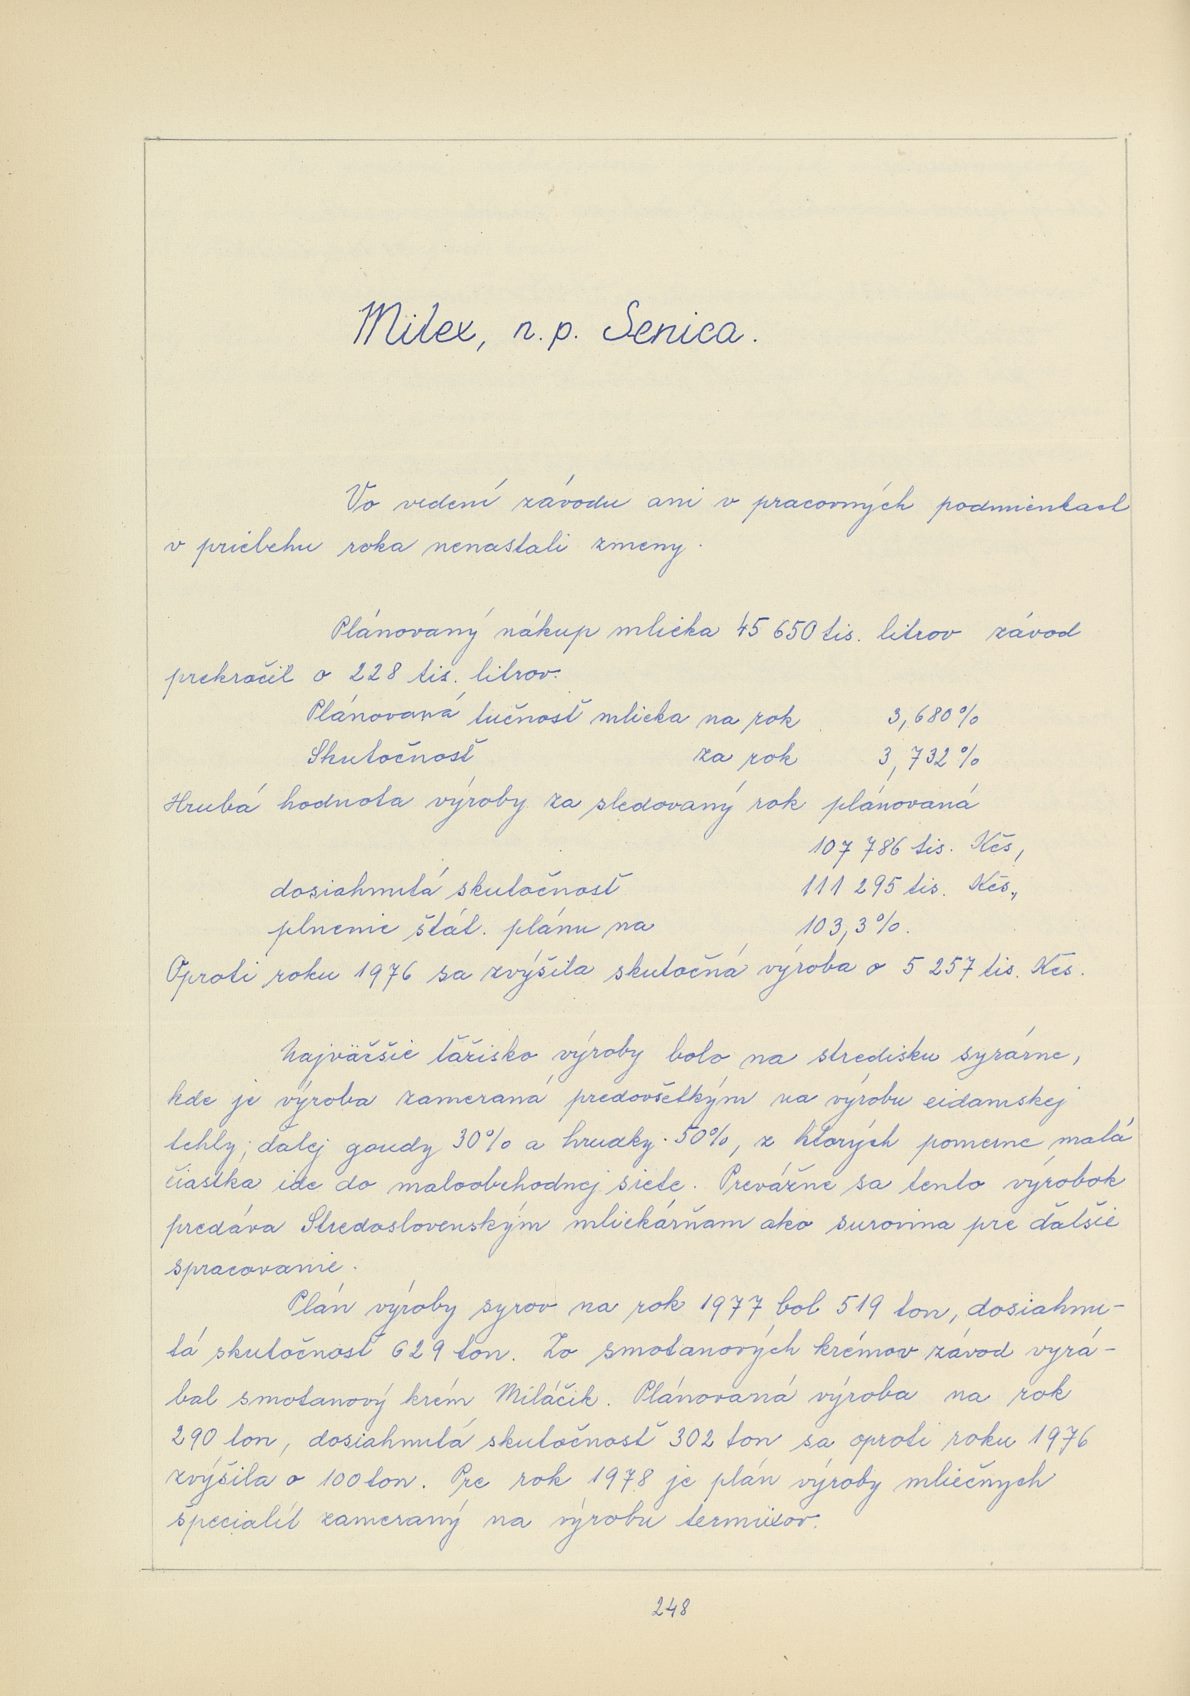 Milex, n.p. Senica.
Vo vedení závodu ani v pracovných podmienkach
v priebehu roka nenastali zmeny.
Plánovaný nákup mlieka 45 650 tis. litrov závod
prekročil o 228 tis. litrov.
Plánovaná tučnosť mlieka na rok 3,680%
Skutočnosť za rok 3,732%
Hrubá hodnota výroby za sledovaný rok plánovaná
107 786 tis. Kčs,
dosiahnutá skutočnosť 111 295 tis. Kčs,
plnenie štát. plánu na 103,3%.
Oproti roku 1976 sa zvýšila skutočná výroba o 5 257 tis. Kčs.
Najväčšie ťažisko výroby bolo na stredisku syrárne,
kde je výroba zameraná predovšetkým na výrobu eidamskej
tehly; ďalej goudy 30% a hrudky 50%, z ktorých pomerne malá
čiastka ide do maloobchodnej siete. Prevážne sa tento výrobok
predáva Stredoslovenským mliekárňam ako surovina pre ďalšie
spracovanie.
Plán výroby syrov na rok 1977 bol 519 ton, dosiahnu-
tá skutočnosť 629 ton. Zo smotanových krémov závod vyrá-
bal smotanový krém Miláčik. Plánovaná výroba na rok
290 ton, dosiahnutá skutočnosť 302 ton sa oproti roku 1976
zvýšila o 100 ton. Pre rok 1978 je plán výroby mliečnych
špecialít zameraný na výrobu termixov.
248